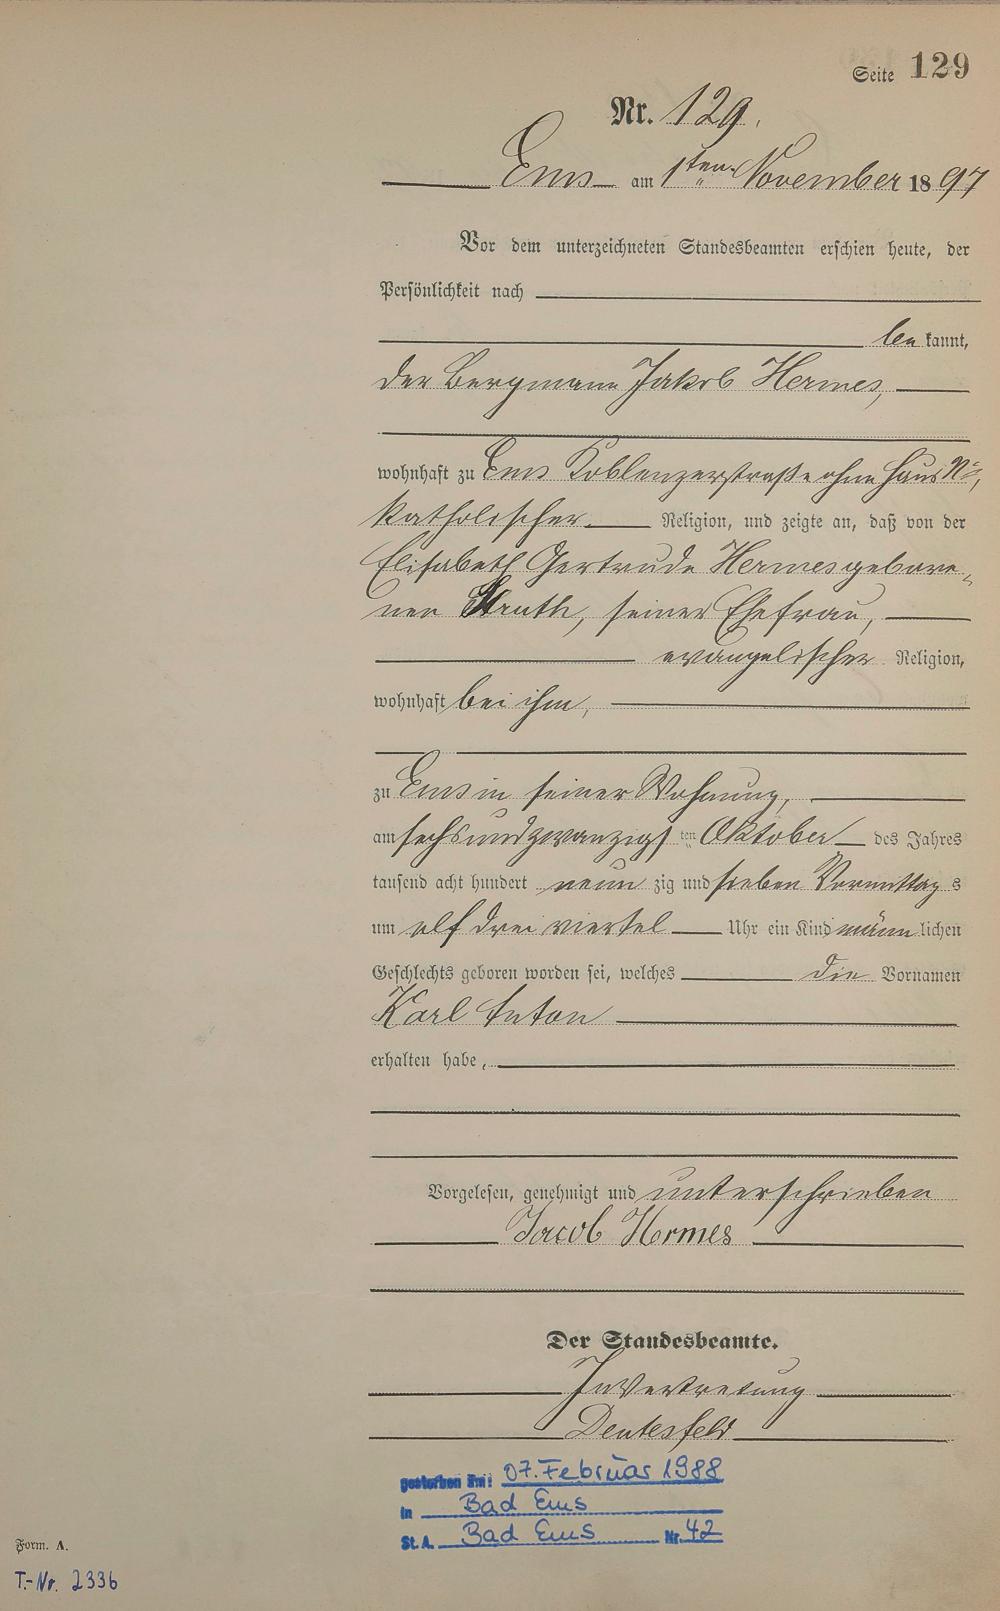 Seite 129
Nr. 129.
Ems am 1ten November 1897
Vor dem unterzeichneten Standesbeamten erschien heute, der
Persönlichkeit nach
bekannt,
der Bergmann Jakob Hermes,
wohnhaft zu Ems Koblenzerstraße ohne Haus No,
katholischer Religion, und zeigte an, daß von der
Elisabeth Gertrude Hermes gebore-
nen Struth, seiner Ehefrau,
evangelischer Religion,
wohnhaft bei ihm,
zu Ems in seiner Wohnung,
am sechsundzwanzigsten Oktober des Jahres
tausend acht hundert neunzig und sieben Vormittags
um elf drei viertel Uhr ein Kind männlichen
Geschlechts geboren worden sei, welches die Vornamen
Karl Anton
erhalten habe,
Vorgelesen, genehmigt und unterschrieben
Jacob Hermes
Der Standesbeamte.
In Vertretung
gestorben am: 07. Februar 1988
in Bad Ems
St. A. Bad Ems Nr. 42
Form. A.
T.-Nr. 2336